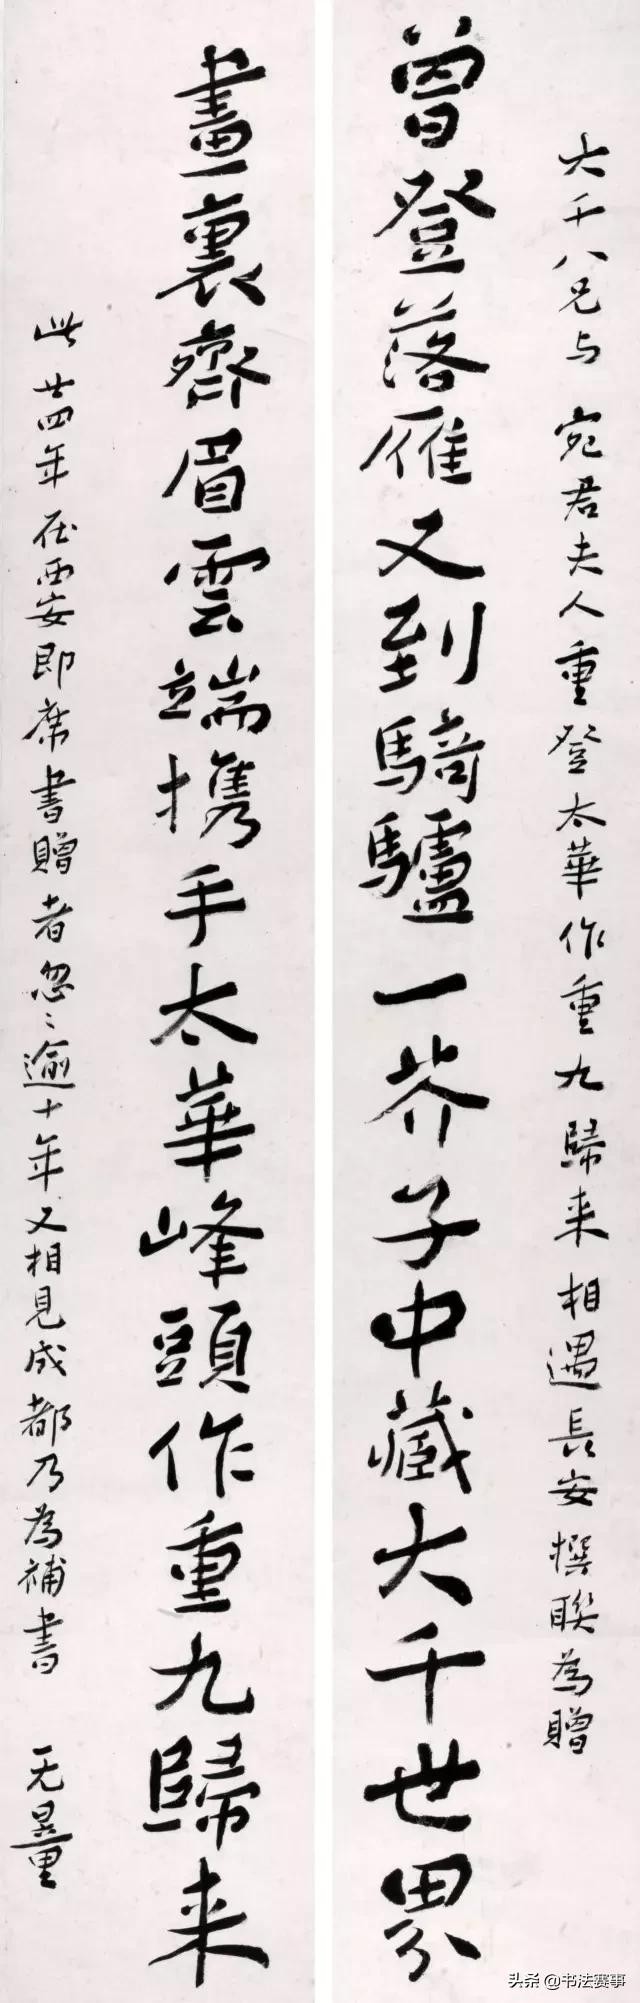 大千八兄与宛君夫人重登太華作重九歸来相遇長安撰聯為贈
曾登落雁又到騎驢一芥子中藏大千世界
畫裏齊眉雲端携手太華峰頭作重九歸来
此廿四年在西安即席書贈者忽〻逾十年又相見成都乃為補書 无量
头条 @书法赛事